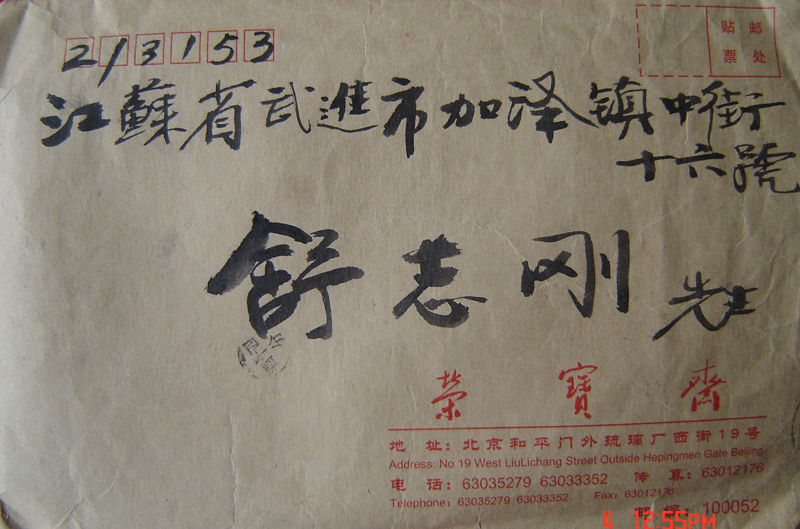 213153
贴邮
票处
江蘇省武進市加泽镇中街
十六號
舒志刚先生
荣寶齋
地 址：北京和平门外琉璃厂西街19号
Address: No 19 West LiuLichang Street Outside Hepingmen Gate Beijing
电 话：63035279 63033352 传 真：63012176
Telephone: 63035279 63033352 Fax: 63012176
邮 编：100052
12:55PM